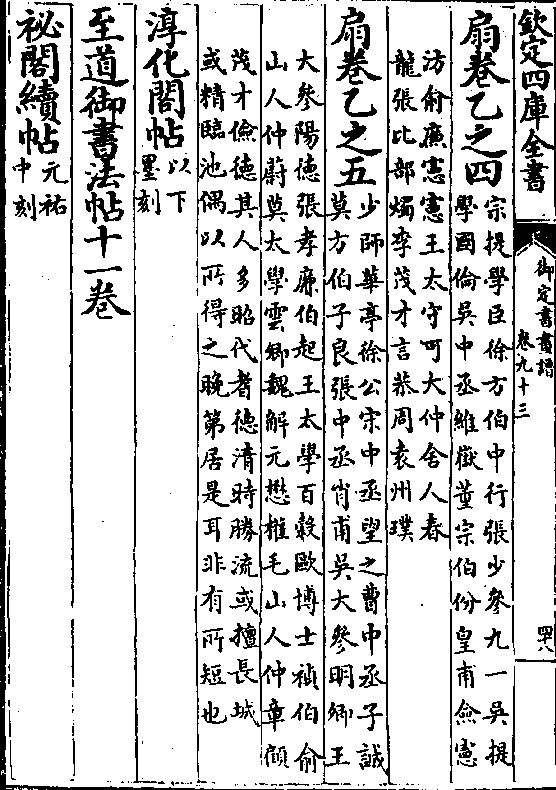 欽定四庫全書
御定書畫譜
卷九十三
四八
扇卷乙之四
宗提學臣徐方伯中行張少參九一吳提
學國倫吳中丞維嶽董宗伯份皇甫僉憲
汸俞廉憲憲王太守可大仲舍人春
龍張比部燭李茂才言恭周袁州璞
扇卷乙之五
少師華亭徐公宋中丞望之曹中丞子誠
莫方伯子良張中丞肖甫吳大參明卿王
大參陽德張孝廉伯起王太學百穀歐博士禎伯俞
山人仲蔚莫太學雲卿魏解元懋權毛山人仲章顧
茂才儉德其人多昭代者德清時勝流或擅長城
或精臨池偶以所得之晚第居是耳非有所短也
淳化閣帖
以下
墨刻
至道御書法帖十一卷
祕閣續帖
元祐
中刻